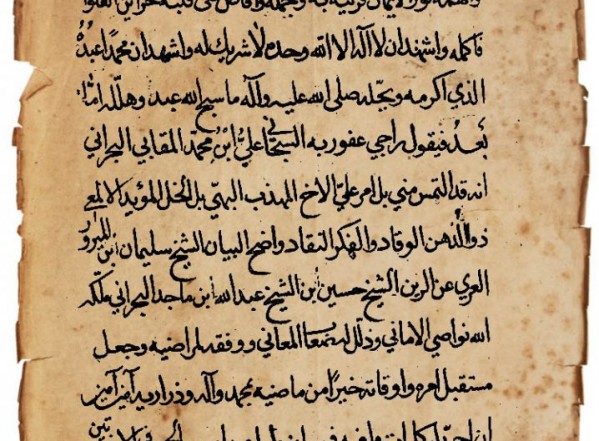 وألهمه نور الايمان
فاكمله واشهد ان لا اله الا الله وحده لا شريك له واشهد ان محمدا عبدُهُ
الذي اكرمه وبجّله صلى الله عليه وآله ما سبح الله عبد وهلّله امّا
بعدُ فيقول راجي عفو ربه السبحاني عليُّ ابنُ محمّد المقابي البحراني
انه قد التمس مني بل امر عليّ الاخ المهذب البهيّ بل الخل المؤيد الالمعي
ذو الذهن الوقاد والفكر النقاد واضح البيان الشيخ سليمان ابن المبرور
العري عن الرين الشيخ حسين ابن الشيخ عبد الله ابن ماجد البحراني ملكه
الله نواصي الاماني وذلّل له صعاب المعاني ووفقه لمراضيه وجعل
مستقبل امره واوقاته خيرًا من ماضيه بمحمد وآله وذراريه آمين آمين